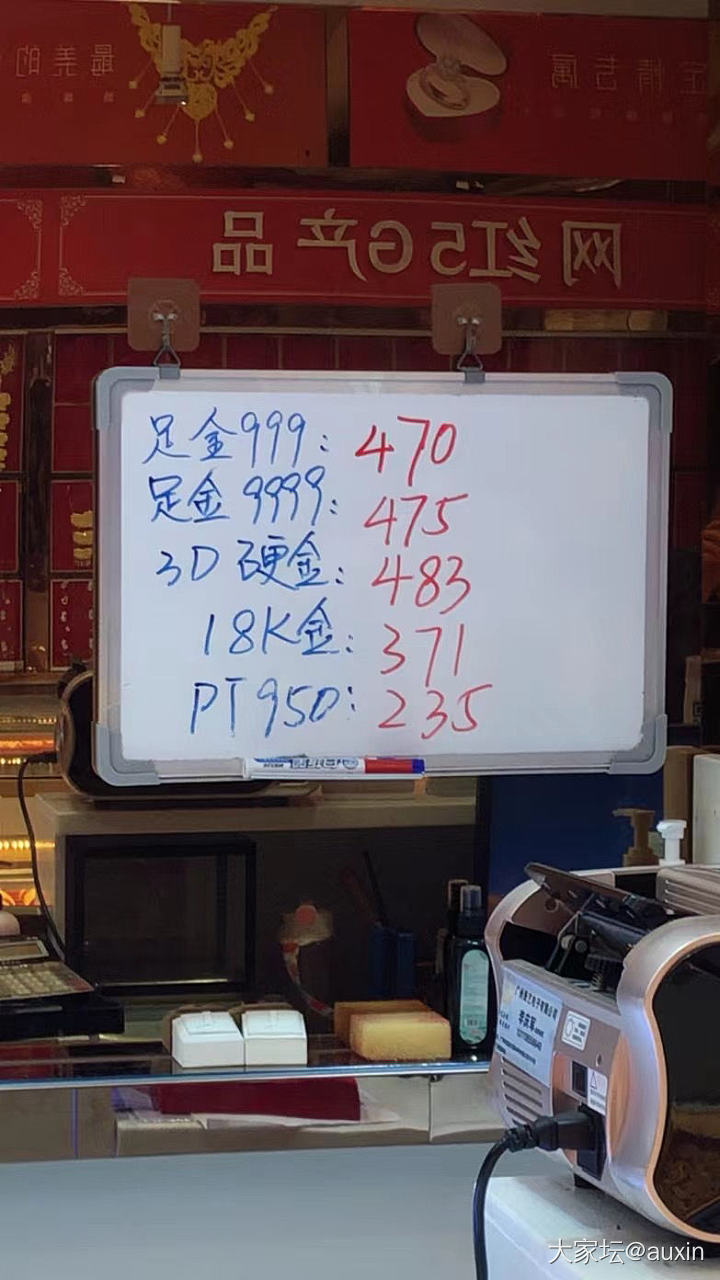 最美的
定情专属
网红5G产品
足金999: 470
足金9999: 475
3D硬金: 483
18K金: 371
PT950: 235
大家坛@auxin